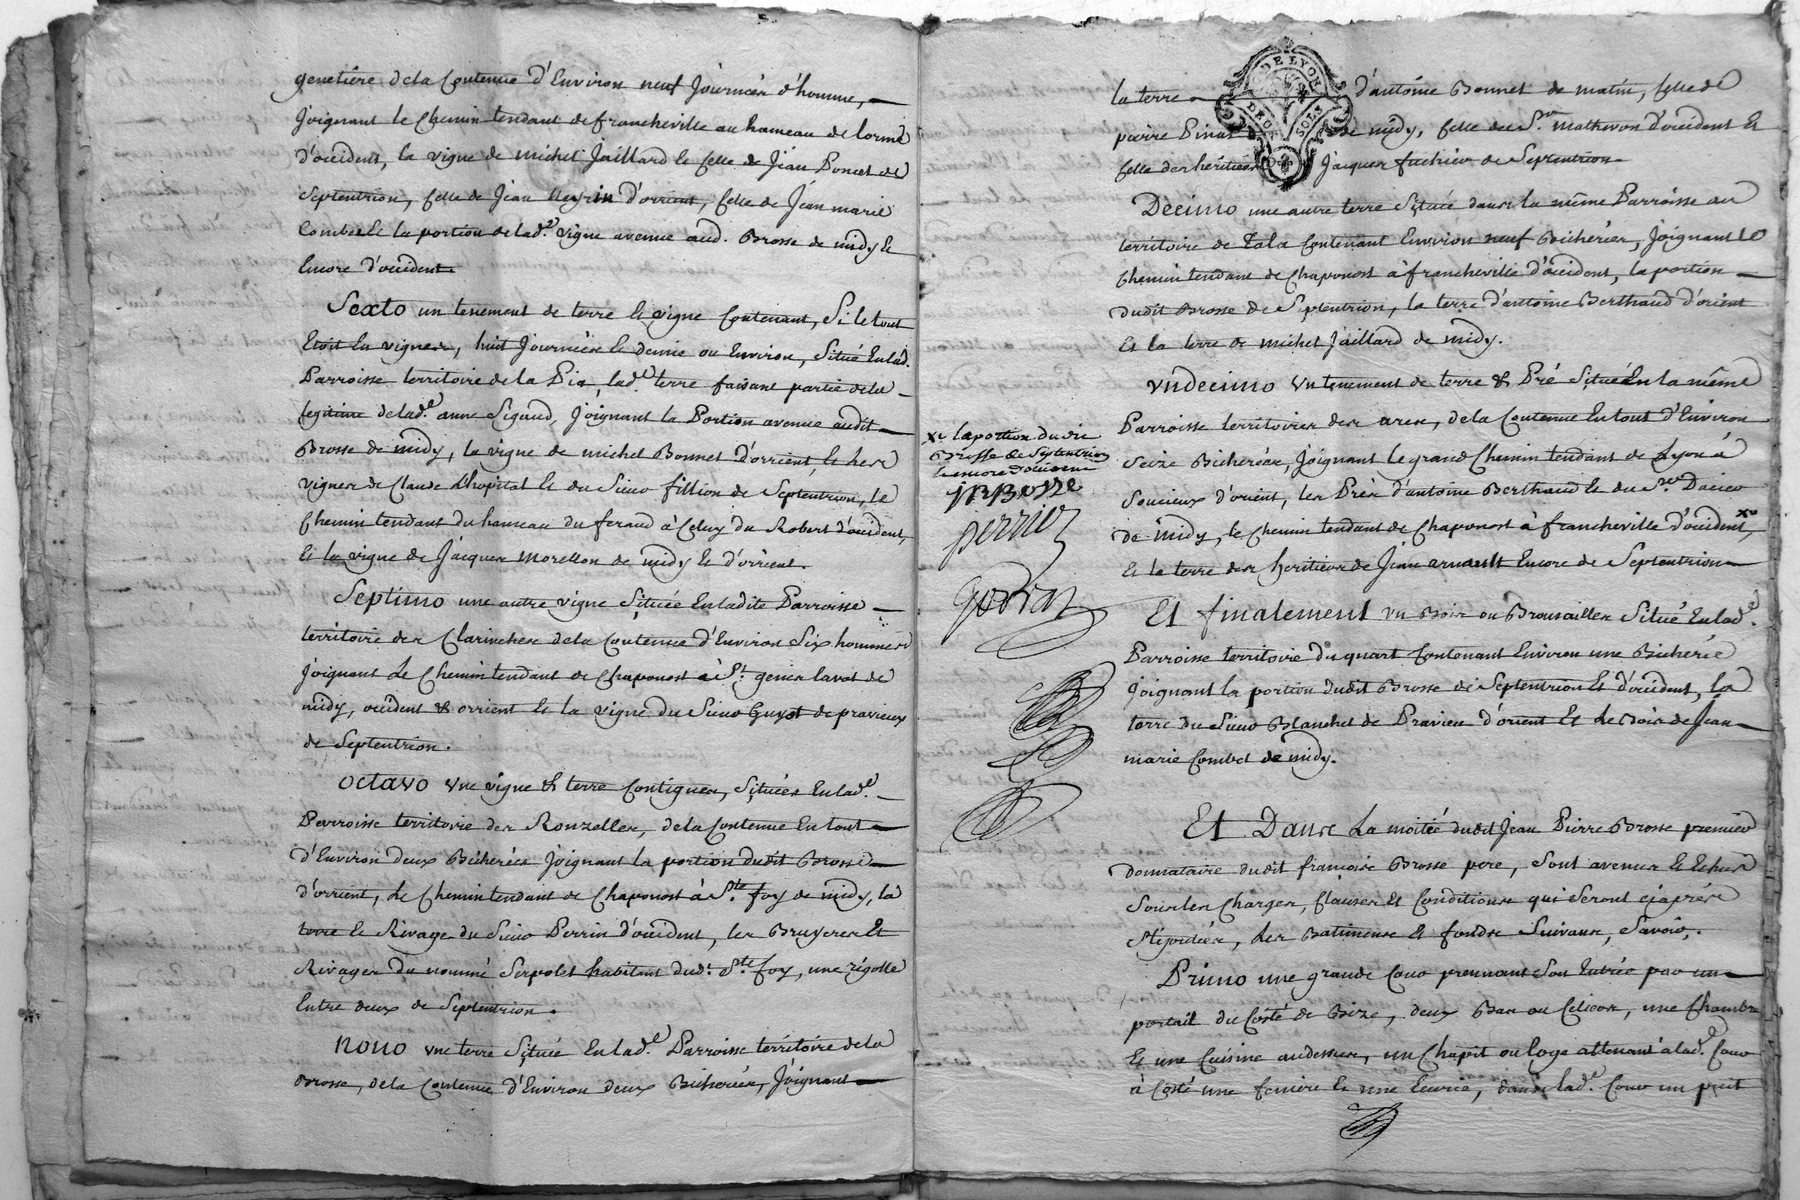 genetiére dela Contenue d'Environ neuf Journées d'homme,
Joignant le Chemin tendant de francheville au hameau de lorme
d'occident, la vigne de michel Jaillard & celle de Jean Poncet de
Septentrion, celle de Jean d'orrient, celle de Jéan marie
Combet & la portion de lad.e vigne avenue aud. Brosse de midy &
Encore d'occident.
Sexto un tenement de terre & vigne Contenant, Si le tout
Etoit En vignes, huit Journées & demie ou Environ, Situé En lad.
Parroisse territoire de la Pia, lad.e terre faisant partie de la
legitime de lad.e anne Sigaud, Joignant la Portion avenue audit
Brosse de midy, la vigne de michel Bonnet d'orrient, & les
vignes de Claude L'hopital & du Sieur fillion de Septentrion, le
Chemin tendant du hameau du feraud à Celuy du Robert d'occident,
& la vigne de Jacques Morellon de midy & d'orrient.
Septimo une autre vigne Située En ladite Parroisse
territoire des Clarinches de la Contenue d'Environ Six hommes
Joignant Le Chemin tendant de Chaponost à S.t genis laval de
midy, occident & orrient & la vigne du Sieur Guyot de pravieux
de Septentrion.
Octavo Une vigne & terre Contigues, Situées En lad.e
Parroisse territoire des Ronzelles, de la Contenue En tout
d'Environ deux Bicherées Joignant la portion dudit Brosse
d'orrient, Le Chemin tendant de Chaponost à S.te foy de midy, la
terre & Rivage du Sieur Perrin d'occident, les Bruyeres Et
Rivages du nommé Serpolet habitant dud.t S.te foy, une rigolle
Entre deux de Septentrion.
Nono une terre Située En lad.e Parroisse territoire de la
Brosse, de la Contenue d'Environ deux Bicherées, Joignant
DE LYON
DEUX SOLS
la terre d'antoine Bonnet de matin, Celle de
pierre Pinat de midy, Celle de S.r matheron d'occident &
Celle des héritiers Jacques de Septentrion
Decimo une autre terre Située dans la même Parroisse au
territoire de Tala Contenant Environ neuf Bicherées, Joignant Le
Chemin tendant de Chaponost à francheville d'occident, la portion
dudit Brosse de Septentrion, la terre d'antoine Berthaud d'orient
Et la terre de michel Jaillard de midy.
Undecimo Un tenement de terre & Pré Situé En la même
Parroisse territoires des ares, de la Contenue En tout d'Environ
Seize Bicherées, Joignant le grand Chemin tendant de Lyon à
Soucieux d'orient, les Prés d'antoine Berthaud & du S.r
De midy, le Chemin tendant de Chaponost à francheville d'occident, x
& la terre des heritiers de Jean arnault Encore de Septentrion
x & la portion dudit
Brosse de Septentrion
& encore d'occident
JPBrosse
perrier
Et finalement un Bois ou Brousailles Situé En lad.e
Parroisse territoire du quart Contenant Environ une Bicherée
Joignant la portion dudit Brosse de Septentrion & d'occident, la
terre du Sieur Blanchet de Pravieu d'orient Et Le Bois de Jean
marie Combet de midy.
Et Dans La moitié dudit Jean Pierre Brosse premier
Donnataire dudit françois Brosse pere, Sont avenus & Echus
Sous les Charges, Clauses Et Conditions qui Seront ciaprés
Stipulées, Les Batimens Et fonds Suivans, Savoir,
Primo une grande Cour prennant Son Entrée par un
portail du Costé de Bize, deux Bas ou Celiers, une Chambre
Et une Cuisine audessus, un Chapit ou loge attenant a lad.e Cour
à Costé une feniere & une Ecurie, dans lad.e Cour un puit